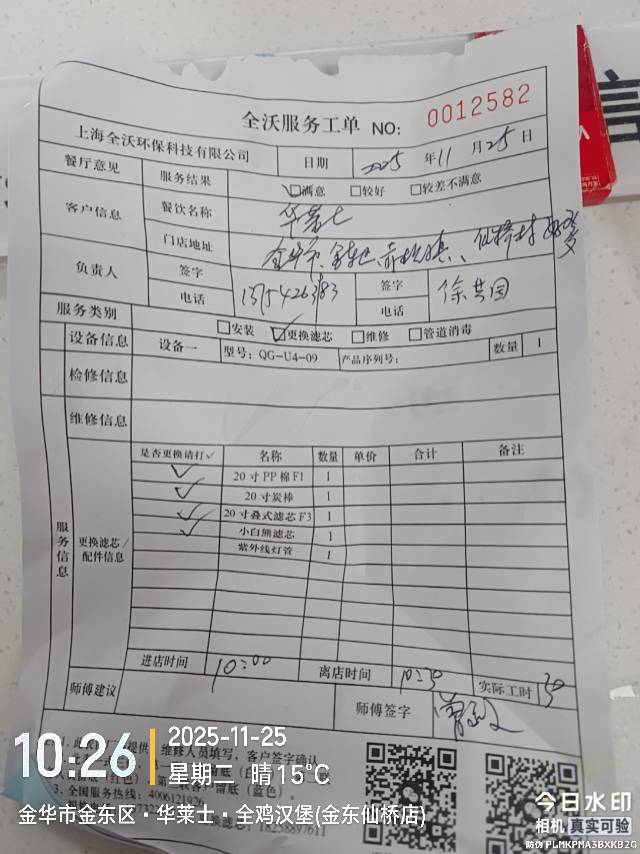 全沃服务工单 NO: 0012582
上海全沃环保科技有限公司 日期 2025 年 11 月 25 日
餐厅意见 服务结果 ☑满意 □较好 □较差不满意
客户信息 餐饮名称 华莱士
门店地址 金华市、金东区 仙桥村
负责人 签字 签字 徐芸国
电话 电话
服务类别 □安装 ☑更换滤芯 □维修 □管道消毒
设备信息 设备一 型号: QG-U4-09 产品序列号: 数量 1
检修信息
维修信息
服务信息
更换滤芯/配件信息
是否更换请打✓ 名称 数量 单价 合计 备注
✓ 20寸PP棉F1 1
✓ 20寸炭棒 1
✓ 20寸叠式滤芯F3 1
✓ 小白熊滤芯 1
紫外线灯管 1
进店时间 10:00 离店时间 10:30 实际工时 30
师傅建议 师傅签字
维修人员填写，客户签字确认
3. 全国服务热线: 4006121926
18258897611
10:26
2025-11-25
星期二 晴 15℃
金华市金东区·华莱士·全鸡汉堡(金东仙桥店)
今日水印
相机 真实可验
防伪 PLMKPMA3BXKB2G